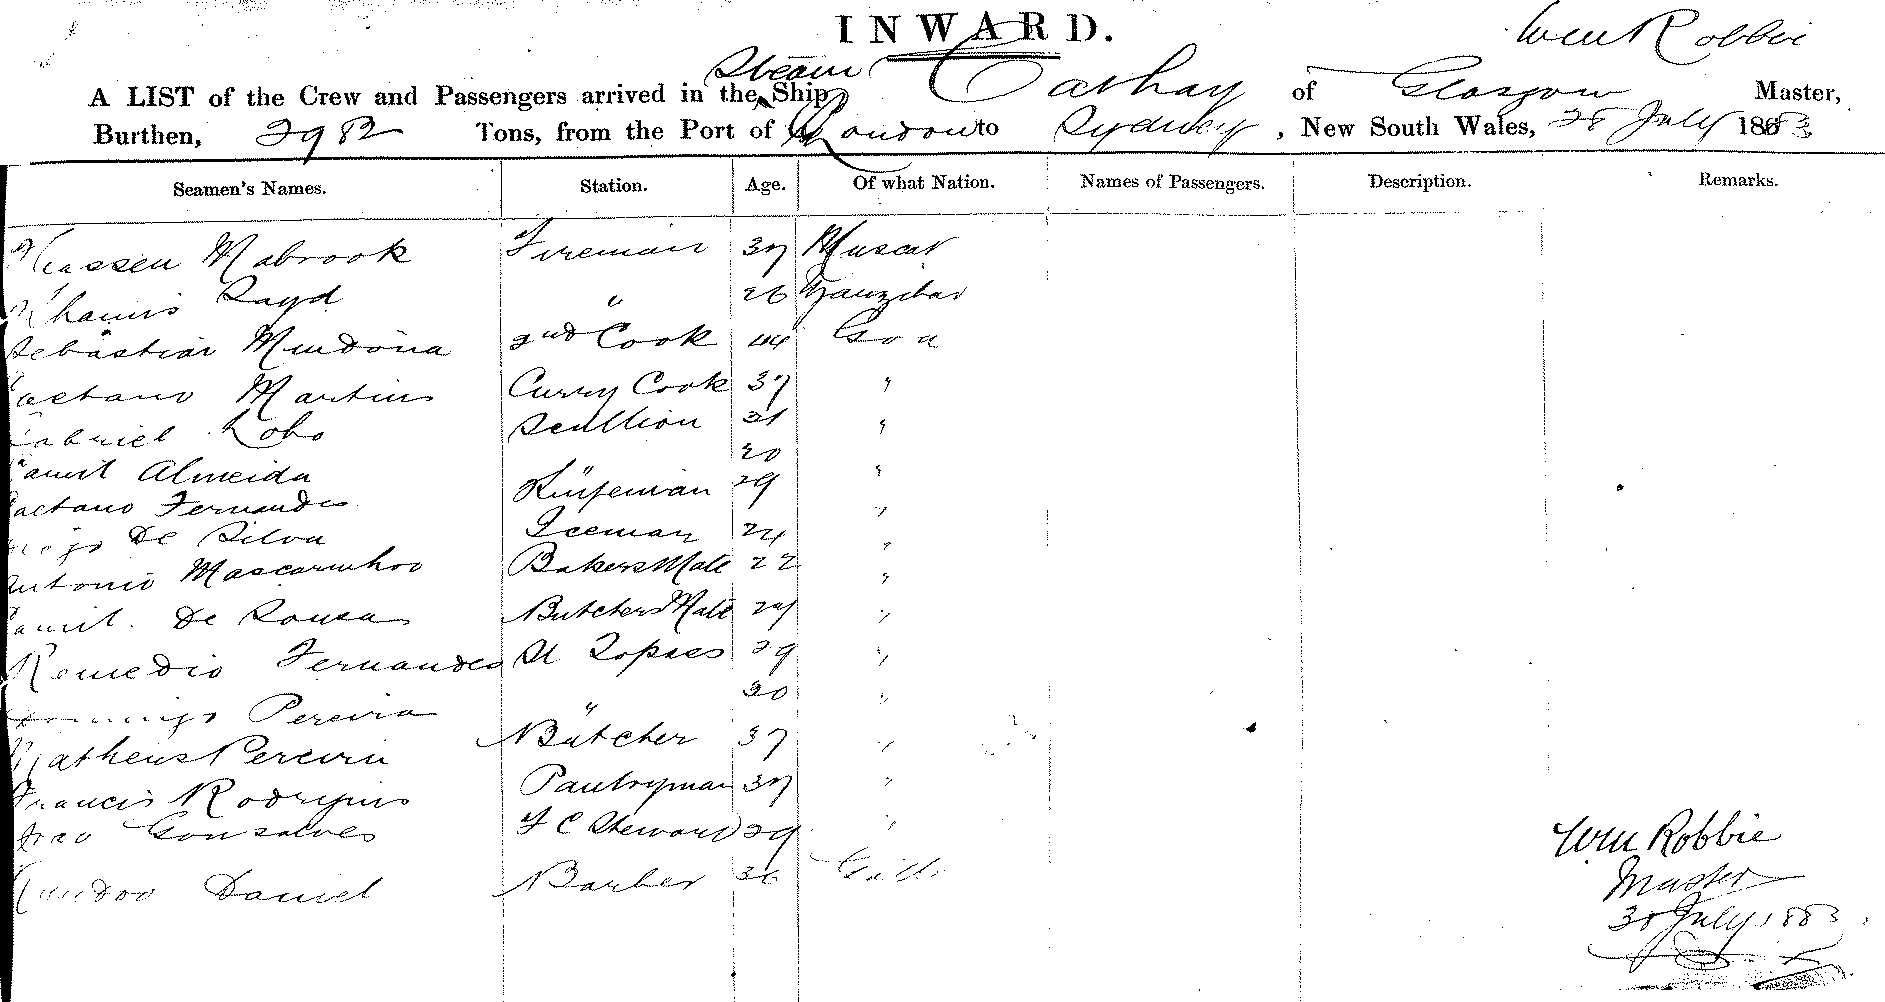 INWARD.
Wm Robbie
Steam
A LIST of the Crew and Passengers arrived in the Ship Cathay of Glasgow Master,
Burthen, 2982 Tons, from the Port of London to Sydney, New South Wales, 28 July 1883
Seamen's Names. Station. Age. Of what Nation. Names of Passengers. Description. Remarks.
Hassen Mabrook Fireman 37 Muscat
Khamis Sayd " 26 Zanzibar
Sebastian Mendona 2nd Cook 44 Goa
Caetano Martins Curry Cook 37 "
Gabriel Lobo Scullion 21 "
Almeida " 20 "
Caetano Fernandes 29 "
De Silva Iceman 24 "
Antonio Mascarinhos Bakers Mate 22 "
De Sousa Butchers Mate "
Remedio Fernandes Topass 29 "
Domingo Pereira " 20 "
Matheus Pereira Butcher 37 "
Francis Rodrigues Pantryman 37 "
Gonsalves Steward 29 "
Daniel Barber 36
Wm Robbie
Master
July 1883